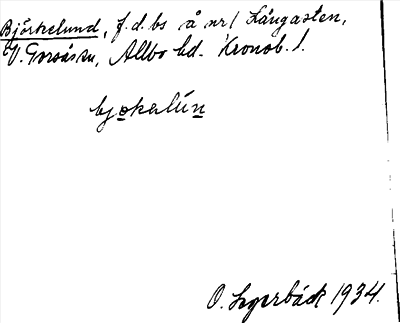 Björkelund, f.d. bs å nr 1 Långasten,
V. Torsås sn, Allbo hd. Kronob. l.
bjọkalún
O. Lyerbäck 1934.